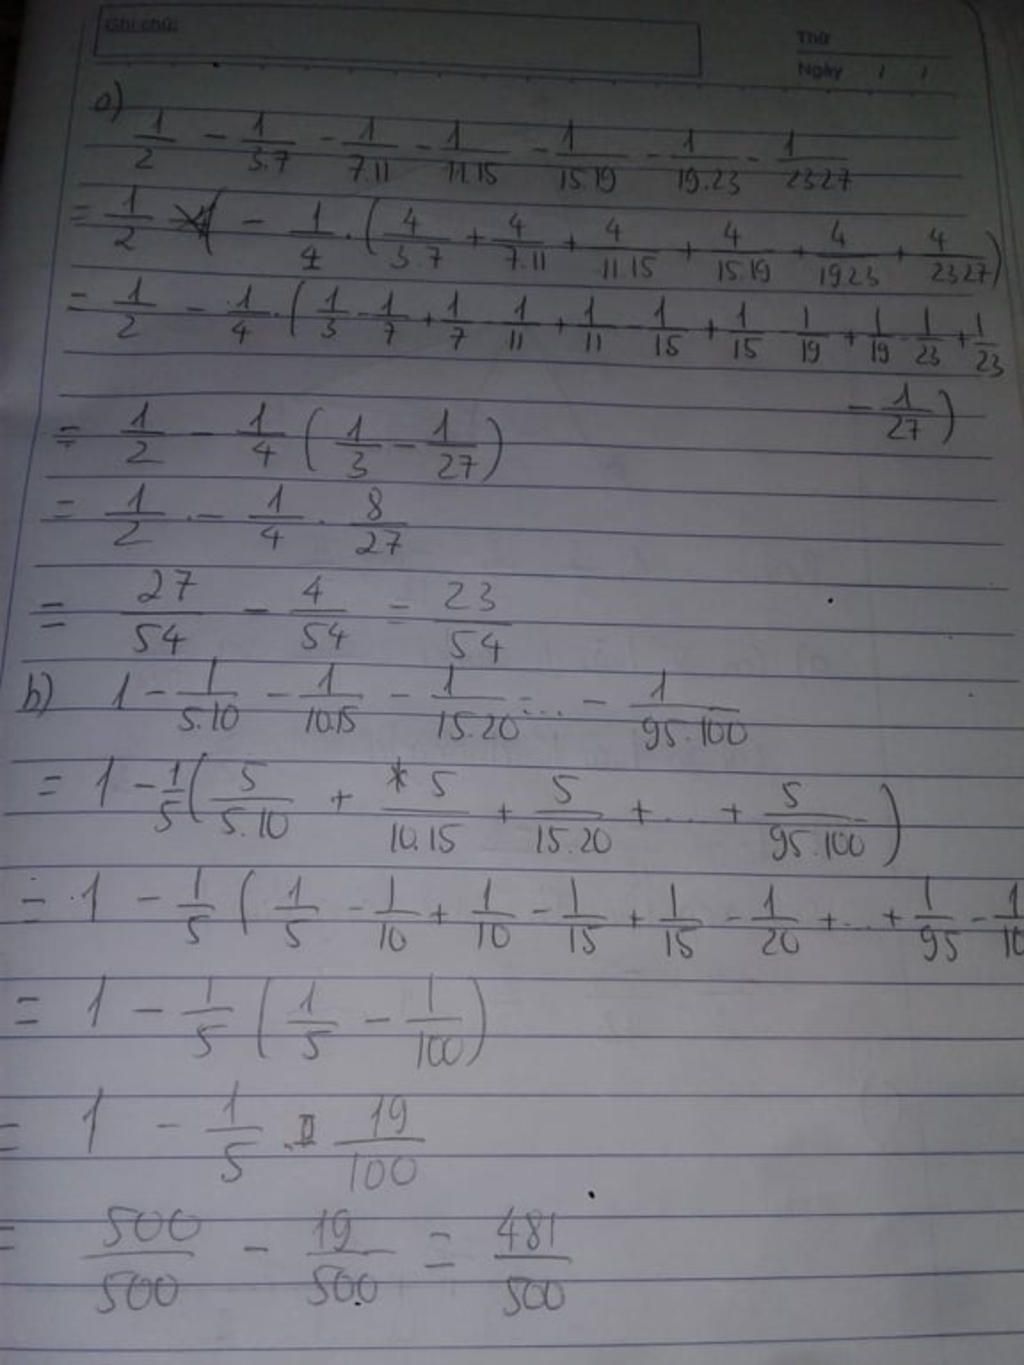 Ghi chú:
Thứ
Ngày / /
a)
1/2 - 1/3.7 - 1/7.11 - 1/11.15 - 1/15.19 - 1/19.23 - 1/23.27
= 1/2 - 1/4 . (4/3.7 + 4/7.11 + 4/11.15 + 4/15.19 + 4/19.23 + 4/23.27)
= 1/2 - 1/4 . (1/3 - 1/7 + 1/7 - 1/11 + 1/11 - 1/15 + 1/15 - 1/19 + 1/19 - 1/23 + 1/23
- 1/27)
= 1/2 - 1/4 (1/3 - 1/27)
= 1/2 - 1/4 . 8/27
= 27/54 - 4/54 = 23/54
b) 1 - 1/5.10 - 1/10.15 - 1/15.20 ... - 1/95.100
= 1 - 1/5 (5/5.10 + 5/10.15 + 5/15.20 + ... + 5/95.100)
= 1 - 1/5 (1/5 - 1/10 + 1/10 - 1/15 + 1/15 - 1/20 + ... + 1/95 - 1/10
= 1 - 1/5 (1/5 - 1/100)
= 1 - 1/5 . 19/100
= 500/500 - 19/500 = 481/500